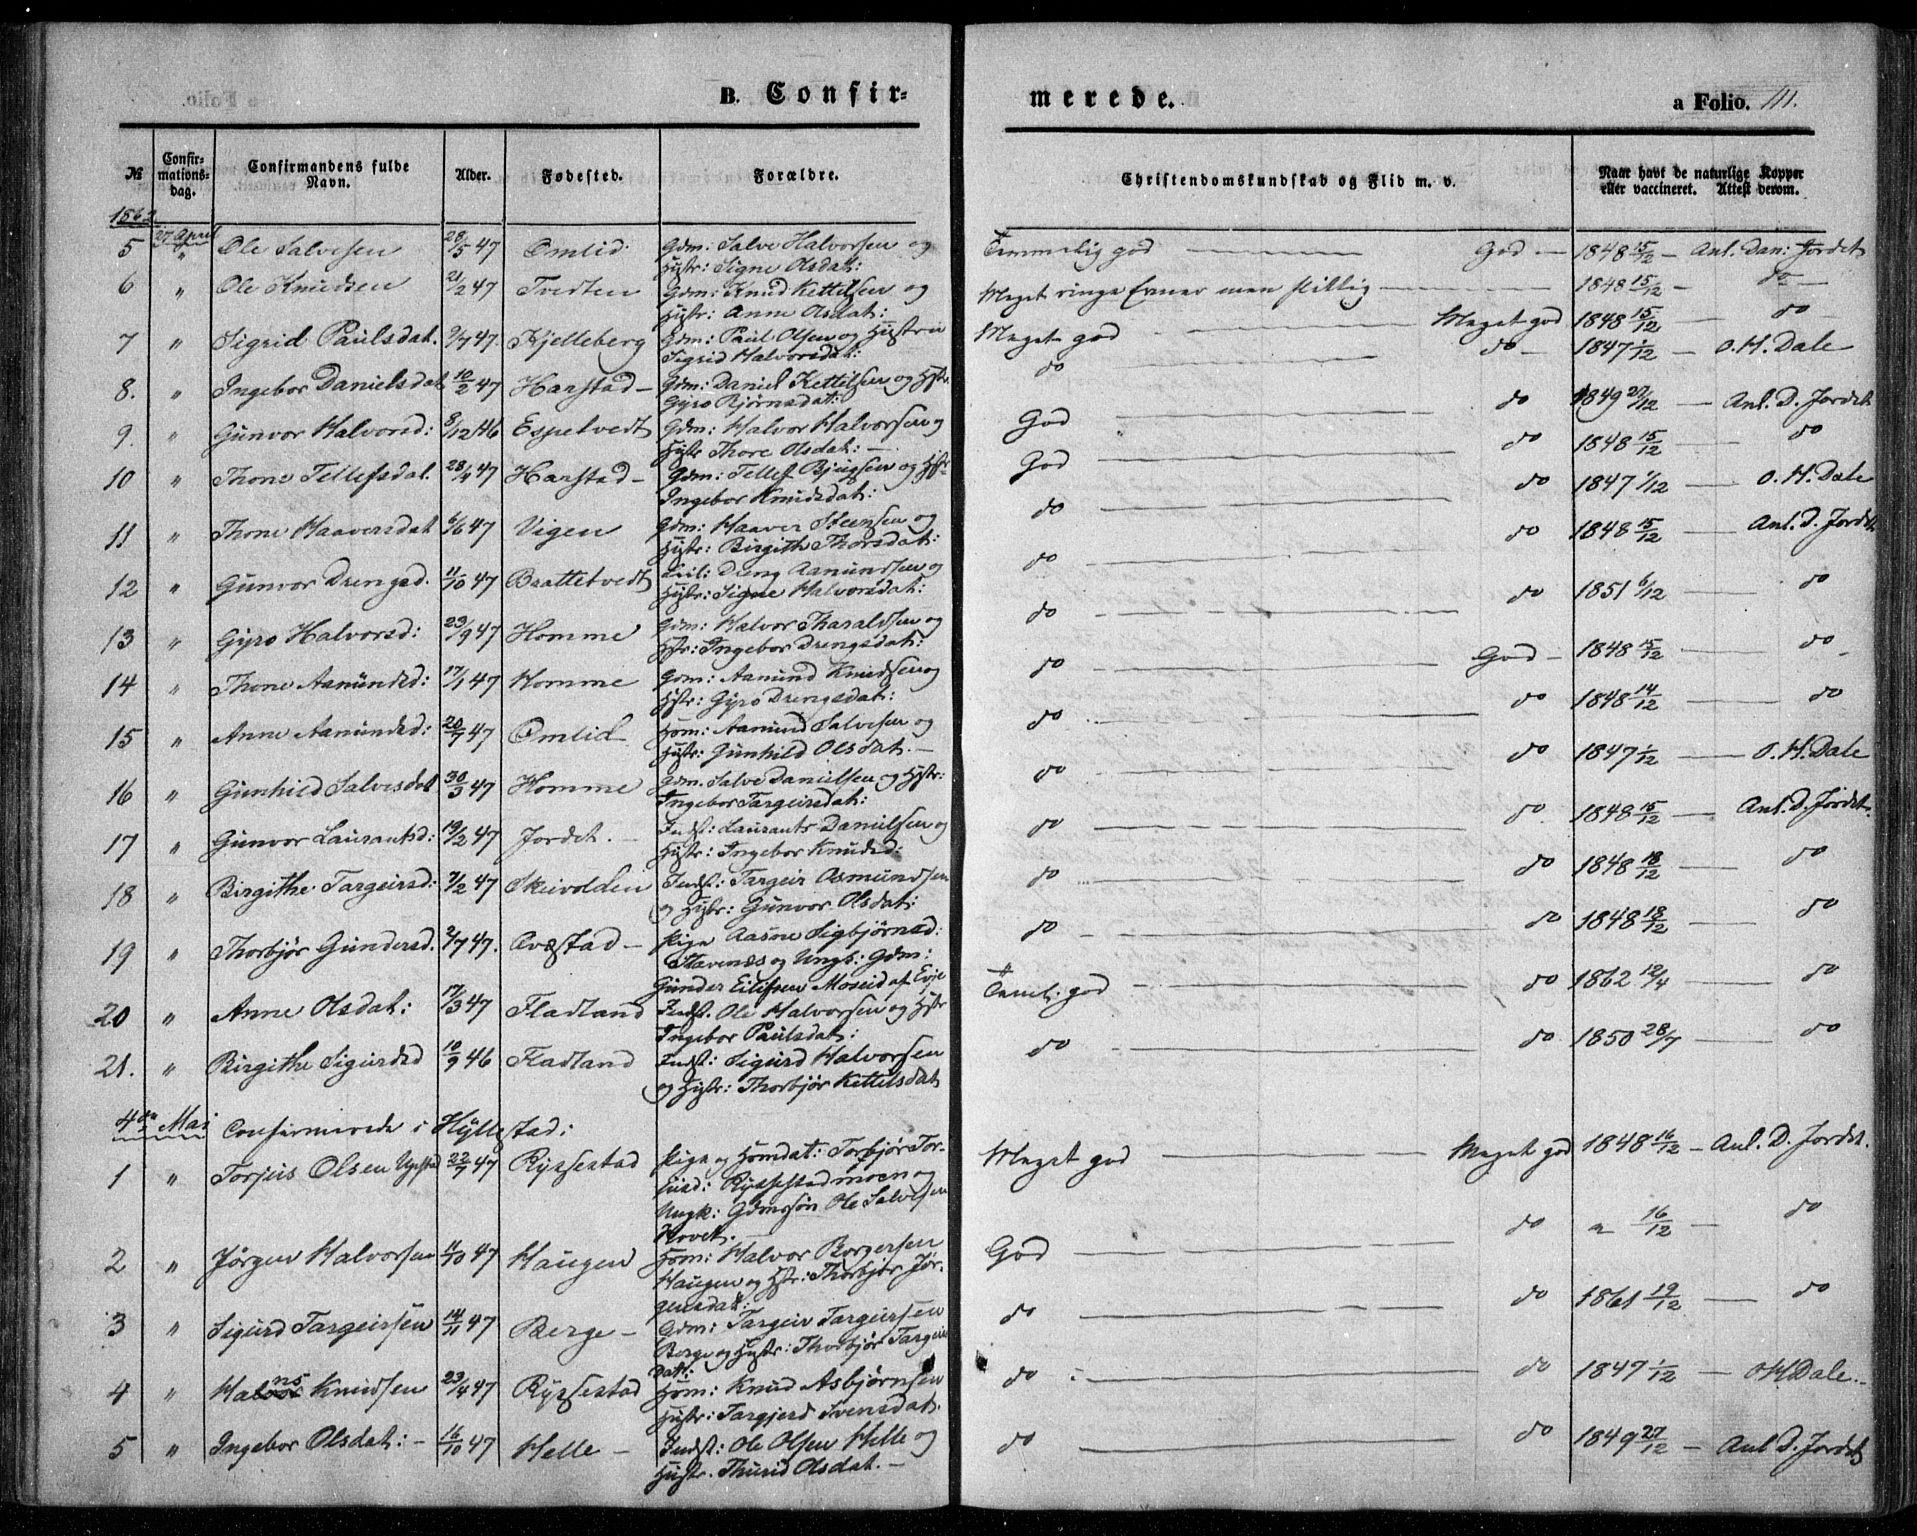 B. Confir-
merede.
a Folio. 111.
№ | Confirmationsdag. | Confirmandens fulde Navn. | Alder. | Fødested. | Forældre. | Christendomskundskab og Flid m. v. | Naar havt de naturlige Kopper eller vaccineret. Attest derom.
1862
5 | 27 April " | Ole Salvesen | 28/5 47 | Omlid | Gdm: Salve Halvorsen og Hustr: Signe Olsdat: | Temmelig god — God — | 1848 15/12 — Anl. Dan: Jordet
6 | " | Ole Knudsen | 21/2 47 | Tvedten | Gdm: Knud Kettelsen og Hustr: Anne Olsdat: | Meget ringe Evner men flittig — | 1848 15/12 — do —
7 | " | Sigrid Paulsdat. | 9/7 47 | Kjelleberg | Gdm: Paul Olsen og Hustru Sigrid Halvorsdat: | Meget god — Meget god | 1848 15/12 do
8. | " | Ingebor Danielsdat | 10/2 47 | Harstad — | Gdm: Daniel Kettelsen og Hstr. Gyro Bjørnsdat: | do — do — | 1847 1/12 — O. H. Dale
9. | " | Gunvor Halvorsd: | 8/12 46 | Espetvedt | Gdm: Halvor Halvorsen og Hustr Thore Olsdat: — | God — do | 1849 27/12 — Anl. D. Jordet
10 | " | Thone Tellefsdat. | 28/4 47 | Harstad — | Gdm: Tellef Bjugsen og Hstr. Ingebor Knudsdat: | God — do | 1848 15/12 — do
11 | " | Thone Haaversdat | 6/6 47 | Vigen | Gdm: Haaver Steensen og Hustr: Birgithe Thorsdat: | do — do | 1847 1/12 — O. H. Dale
12 | " | Gunvor Drengsd. | 11/10 47 | Brattetvedt | Dreng Aamundsen og Hustr: Signe Halvorsdat: | do — do | 1848 15/12 — Anl. D. Jordet
13 | " | Gyro Halvorsd: | 23/9 47 | Homme | Gdm: Halvor Tharaldsen og Hstr: Ingebor Drengsdat: | do — do | 1851 6/12 — do
14 | " | Thone Aamundsd: | 17/1 47 | Homme | Gdm: Aamund Knudsen og Hstr: Gyro Drengsdat: | do — God — | 1848 15/12 — do
15 | " | Anne Aamundsd: | 20/7 47 | Omlid | Hsm: Aamund Salvesen og Hustr: Gunhild Olsdat. — | do — do | 1848 14/12 — do
16 | " | Gunhild Salvesdat | 30/3 47 | Homme | Gdm. Salve Danielsen og Hstr: Ingebor Targeirsdat: | do — do | 1847 1/12 — O. H. Dale
17 | " | Gunvor Laurantsd: | 19/2 47 | Jordet. — | Indst: Laurants Danielsen og Hustr: Ingebor Knudsd: | do — do. | 1848 15/12 — Anl. D. Jordet.
18 | " | Birgithe Targeirsd: | 7/2 47 | Skeivolden | Indst: Targeir Osmundsen og Hustr: Gunvor Olsdat: | do — do | 1848 18/12 — do
19 | " | Thorbjør Gundersd. | 2/7 47. | Qvæstad — | Pige Aasne Sigbjørnsd: Stavenæs og Ungk: Gdm: Gunder Eilifsen Moseid af Evje | do — do | 1848 18/12 — do
20 | " | Anne Olsdat: | 17/3 47 | Fladland | Indst. Ole Halvorsen og Hstr Ingebor Paulsdat: | Teml: god — do | 1862 12/4 — do
21. | " | Birgithe Sigurdsd | 10/9 46 | Fladland | Indst: Sigurd Halvorsen og Hustr: Thorbjør Kettelsdat | do — do | 1850 28/7 — do
4de Mai Confirmerede i Hyllestad:
1 | " | Torjus Olsen | 22/7 47 | Ryssestad | Pige og Hsmdat: Torbjør Torjusd: Ryssestadmoen og Ungk: Gdmssøn Ole Salvesen Hovet. | Meget god — Meget god | 1848 16/12 — Anl. D. Jordet.
2 | " | Jørgen Halvorsen | 11/10 47 | Haugen | Hsm: Halvor Borgersen Haugen og Hstr: Thorbjør Jørgensdat: | God — do | " 16/12 — do
3 | " | Sigurd Targeirsen | 14/11 47 | Berge — | Gdm: Targeir Targeirsen Berge og Hustr: Thorbjør Targeirsdat: | do — do | 1861 19/12 — do
4 | " | Hans Knudsen | 23/4 47 | Ryssestad | Hsm: Knud Asbjørnsen Hustr: Targjerd Svensdat. | do — do | 1847 1/12 — O H Dale.
5 | " | Ingebor Olsdat: — | 16/10 47 | Helle — | Indst: Ole Olsen Helle og Hustr. Thurid Olsdat. — | do — do | 1849 27/12 — Anl D. Jordet